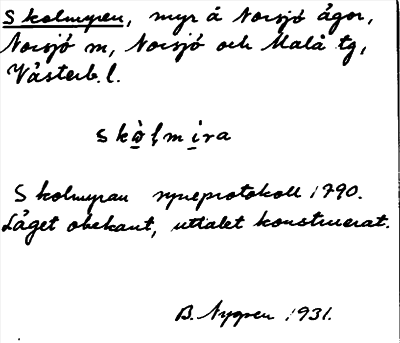 Skolmyren, myr å Norsjö ägor,
Norsjö sn, Norsjö och Malå tg,
Västerb. l.
skò̱lmi̱ra
Skolmyran syneprotokoll 1790.
Läget obekant, uttalet konstruerat.
B. Nygren 1931.